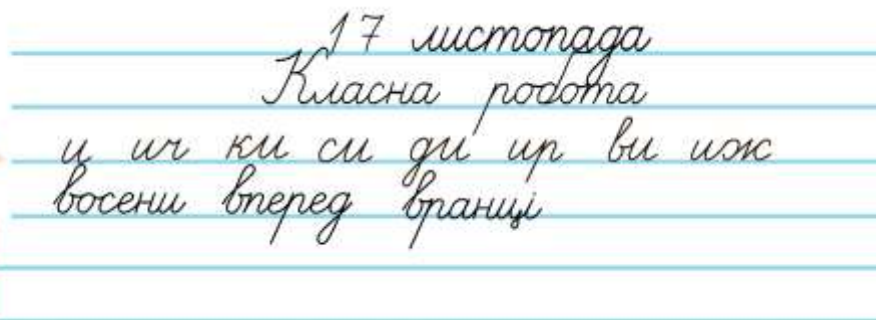 17 листопада
Класна робота
и ич ки си ди ир ви иж
восени вперед вранці